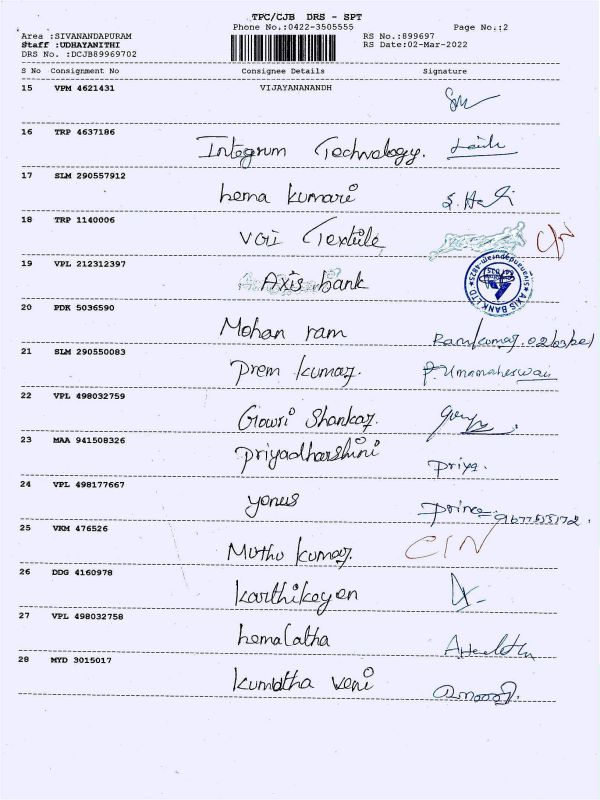 TPC/CJB DRS - SPT
Phone No.:0422-3505555 Page No.:2
Area :SIVANANDAPURAM RS No.:899697
Staff :UDHAYANITHI RS Date:02-Mar-2022
DRS No. :DCJB89969702
S No Consignment No Consignee Details Signature
15 VPM 4621431 VIJAYANANANDH
16 TRP 4637186
Integrum Technology.
17 SLM 290557912
hema kumari
18 TRP 1140006
VGII Textile
19 VPL 212312397
Axis bank
AXIS BANK LTD
20 PDK 5036590
Mohan ram Ramkumar.
21 SLM 290550083
Prem kumar. P. Ummaheswari
22 VPL 498032759
Gowri Shankar.
23 MAA 941508326
Priyadharshini Priya.
24 VPL 498177667
yonus Prince
25 VKM 476526
Muthu kumar. CIN
26 DDG 4160978
karthikeyan
27 VPL 498032758
hemalatha
28 MYD 3015017
kumutha veni